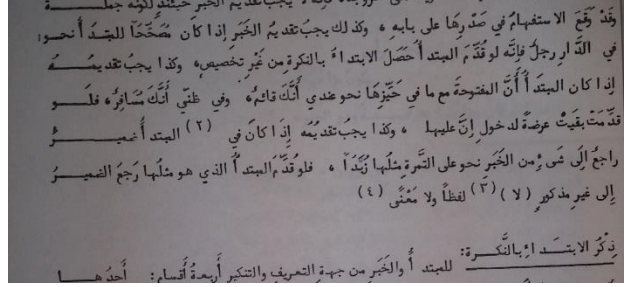 يجب تقديم الخبر حينئذ لكونه جملة
وقَدْ وقَعَ الاستفهامُ في صَدْرِها على بابهِ ، وكذلك يجبُ تقديمُ الخَبَرِ إذا كان مُصَحِّحًا للمبتدأ نحو:
في الدَّارِ رجلٌ فإنَّه لو قُدِّمَ المبتدأ حَصَلَ الابتداءُ بالنكرةِ من غَيْرِ تخصيصٍ، وكذا يجبُ تقديمُهُ
إذا كان المبتدَأ أَنَّ المفتوحةَ مع ما في حَيِّزِها نحو عندي أَنَّكَ قائمٌ، وفي ظنّي أَنَّكَ مُسَافِرٌ، فلَو
قدِّمَتْ بقيَتْ عرضةً لدخول إنَّ عليها ، وكذا يجبُ تقديمُه إذَا كانَ في (٢) المبتدأ ضميرٌ
راجعٌ إلى شيْءٍ من الخَبَرِ نحو على التَّمرةِ مثلُها زُبْدًا ، فلو قُدِّمَ المبتدأُ الذي هو مثلُها رَجعَ الضميرُ
إلى غيرِ مذكورٍ ( لا ) (٣) لفظًا ولا مَعْنًى (٤)
ذِكْرُ الابتداءِ بالنَّكرةِ: للمبتدأُ والخَبَرِ من جهةِ التعريفِ والتنكيرِ أربعةُ أقسامٍ: أحدُها